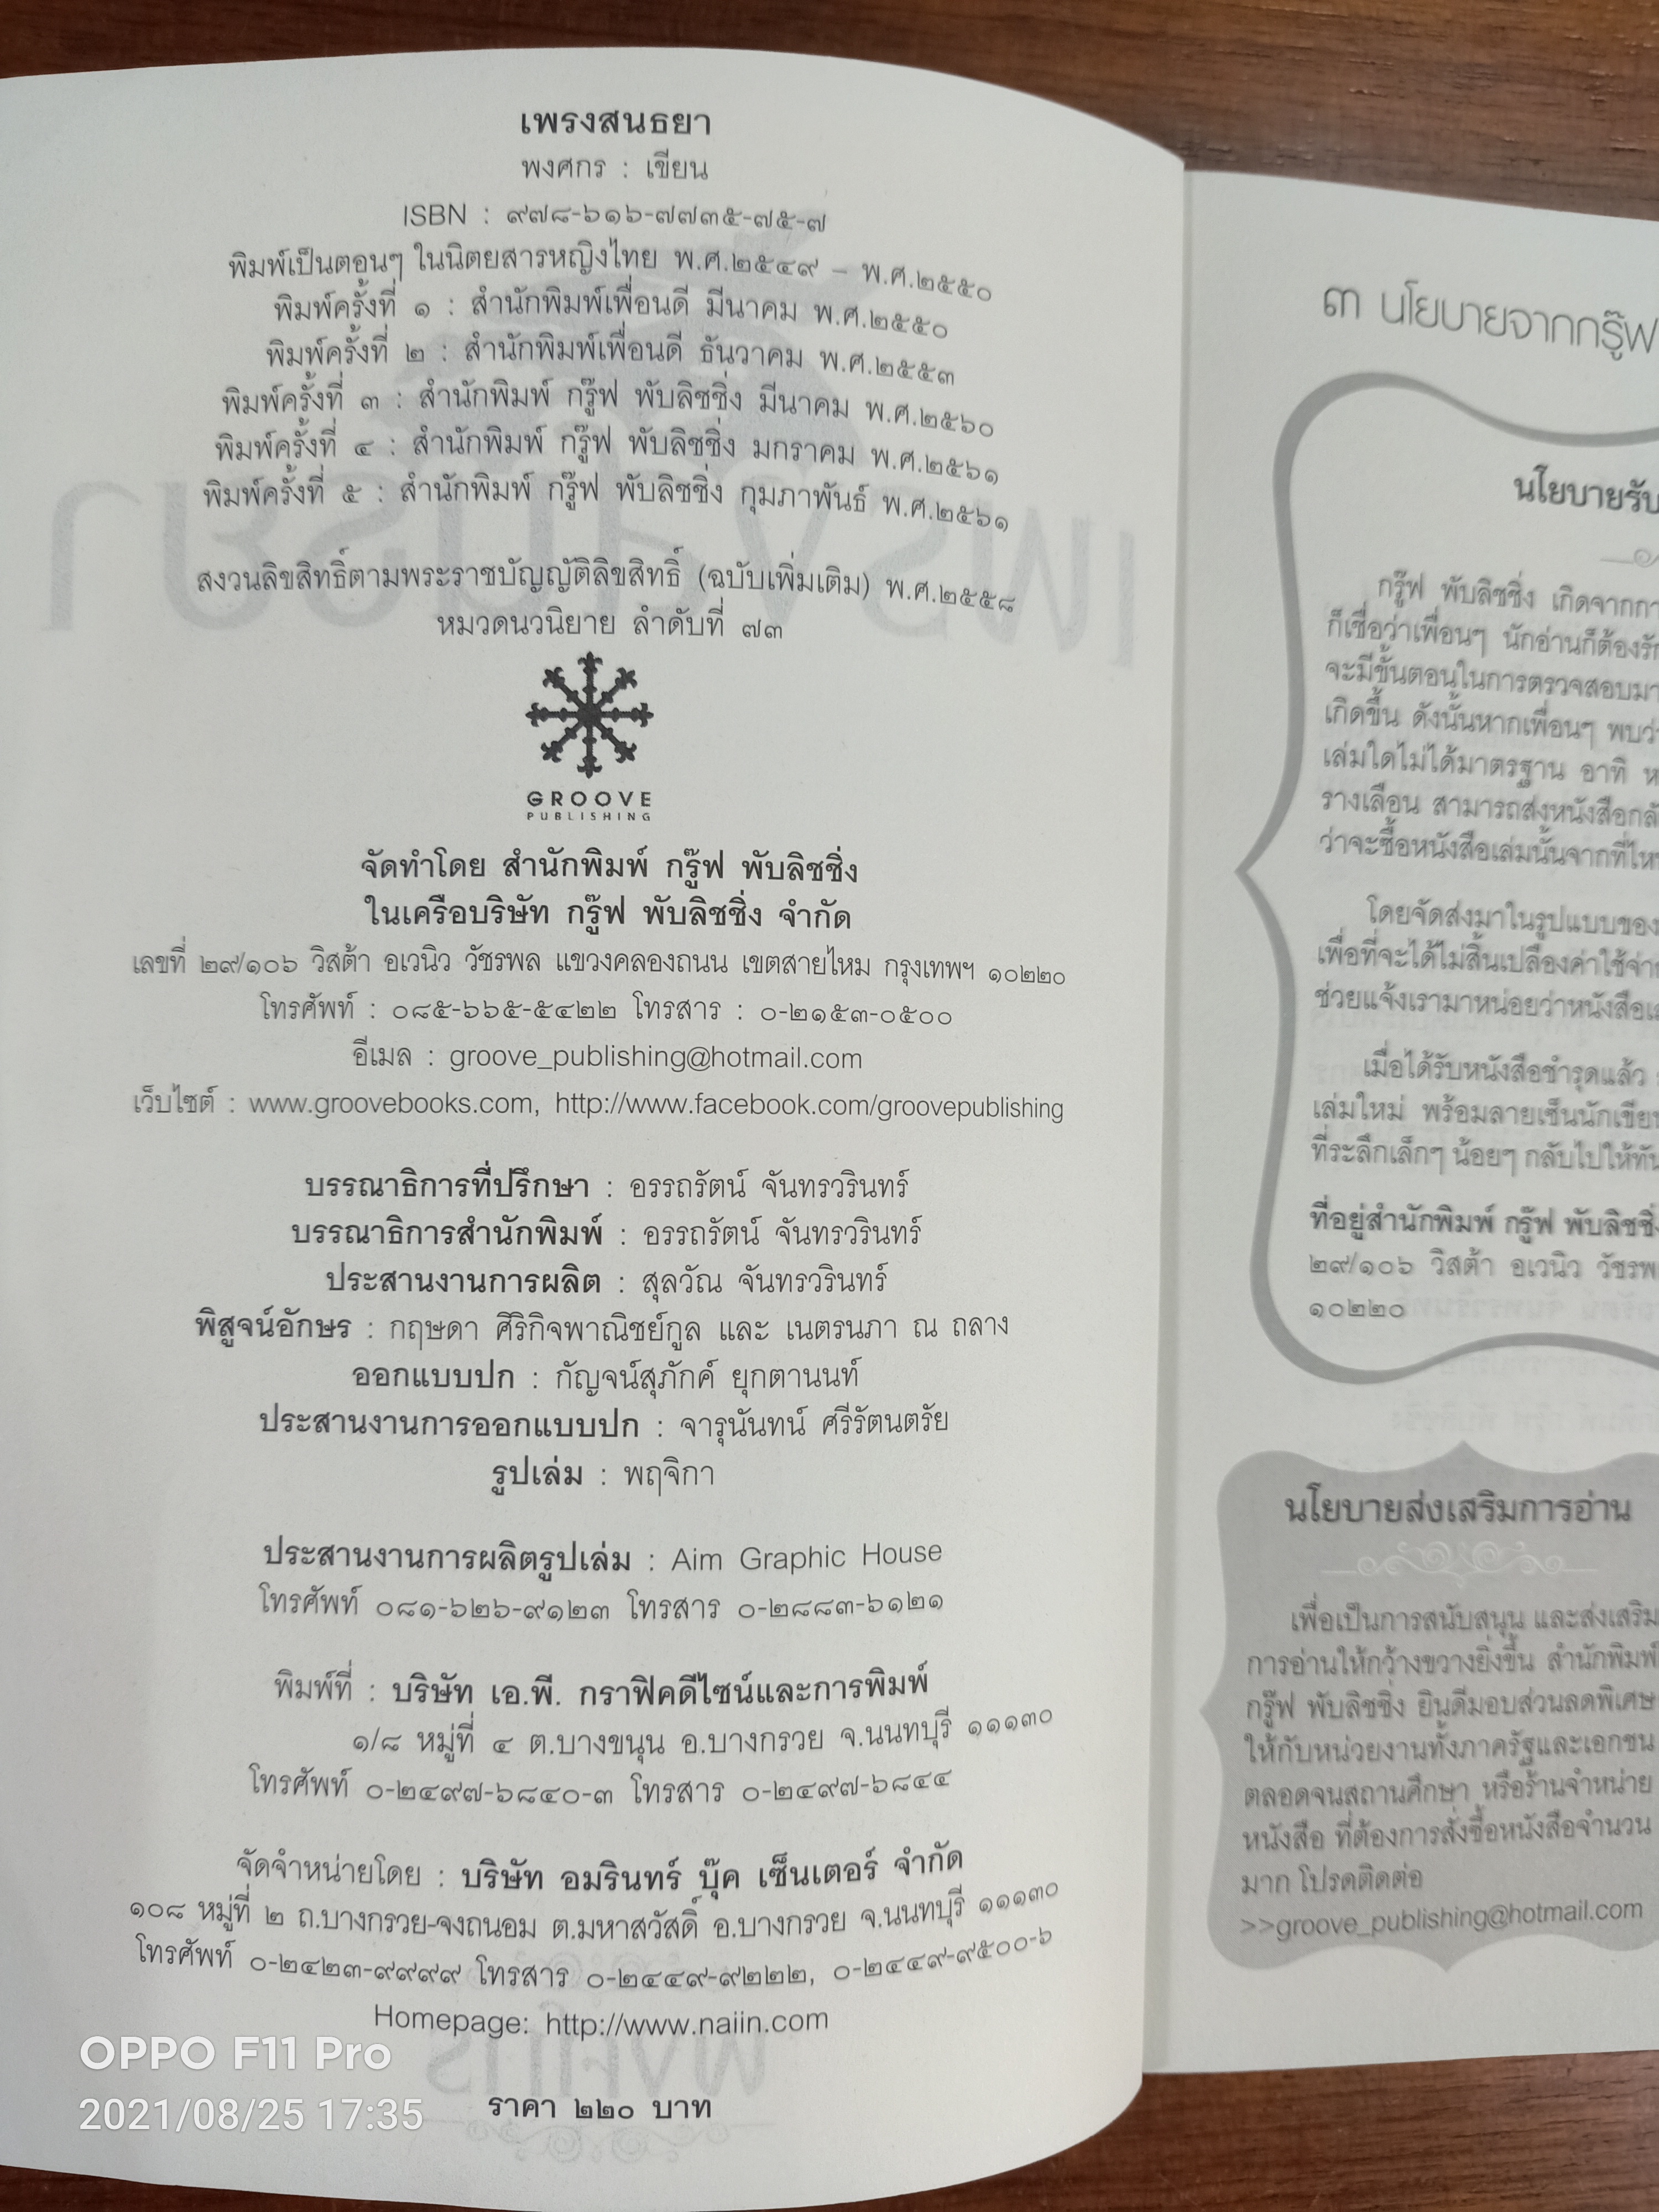 เพรงสนธยา
พงศกร : เขียน
ISBN : ๙๗๘-๖๑๖-๗๗๓๕-๗๕-๗
พิมพ์เป็นตอนๆ ในนิตยสารหญิงไทย พ.ศ.๒๕๔๙ – พ.ศ.๒๕๕๐
พิมพ์ครั้งที่ ๑ : สำนักพิมพ์เพื่อนดี มีนาคม พ.ศ.๒๕๕๐
พิมพ์ครั้งที่ ๒ : สำนักพิมพ์เพื่อนดี ธันวาคม พ.ศ.๒๕๕๓
พิมพ์ครั้งที่ ๓ : สำนักพิมพ์ กรู๊ฟ พับลิชชิ่ง มีนาคม พ.ศ.๒๕๖๐
พิมพ์ครั้งที่ ๔ : สำนักพิมพ์ กรู๊ฟ พับลิชชิ่ง มกราคม พ.ศ.๒๕๖๑
พิมพ์ครั้งที่ ๕ : สำนักพิมพ์ กรู๊ฟ พับลิชชิ่ง กุมภาพันธ์ พ.ศ.๒๕๖๑
สงวนลิขสิทธิ์ตามพระราชบัญญัติลิขสิทธิ์ (ฉบับเพิ่มเติม) พ.ศ.๒๕๕๘
หมวดนวนิยาย ลำดับที่ ๗๓
GROOVE
PUBLISHING
จัดทำโดย สำนักพิมพ์ กรู๊ฟ พับลิชชิ่ง
ในเครือบริษัท กรู๊ฟ พับลิชชิ่ง จำกัด
เลขที่ ๒๙/๑๐๖ วิสต้า อเวนิว วัชรพล แขวงคลองถนน เขตสายไหม กรุงเทพฯ ๑๐๒๒๐
โทรศัพท์ : ๐๘๕-๖๖๕-๕๔๒๒ โทรสาร : ๐-๒๑๕๓-๐๕๐๐
อีเมล : groove_publishing@hotmail.com
เว็บไซต์ : www.groovebooks.com, http://www.facebook.com/groovepublishing
บรรณาธิการที่ปรึกษา : อรรถรัตน์ จันทรวรินทร์
บรรณาธิการสำนักพิมพ์ : อรรถรัตน์ จันทรวรินทร์
ประสานงานการผลิต : สุลวัณ จันทรวรินทร์
พิสูจน์อักษร : กฤษดา ศิริกิจพาณิชย์กูล และ เนตรนภา ณ ถลาง
ออกแบบปก : กัญจน์สุภักค์ ยุกตานนท์
ประสานงานการออกแบบปก : จารุนันทน์ ศรีรัตนตรัย
รูปเล่ม : พฤจิกา
ประสานงานการผลิตรูปเล่ม : Aim Graphic House
โทรศัพท์ ๐๘๑-๖๒๖-๙๑๒๓ โทรสาร ๐-๒๘๘๓-๖๑๒๑
พิมพ์ที่ : บริษัท เอ.พี. กราฟิคดีไซน์และการพิมพ์
๑/๘ หมู่ที่ ๔ ต.บางขนุน อ.บางกรวย จ.นนทบุรี ๑๑๑๓๐
โทรศัพท์ ๐-๒๔๙๗-๖๘๔๐-๓ โทรสาร ๐-๒๔๙๗-๖๘๔๔
จัดจำหน่ายโดย : บริษัท อมรินทร์ บุ๊ค เซ็นเตอร์ จำกัด
๑๐๘ หมู่ที่ ๒ ถ.บางกรวย-จงถนอม ต.มหาสวัสดิ์ อ.บางกรวย จ.นนทบุรี ๑๑๑๓๐
โทรศัพท์ ๐-๒๔๒๓-๙๙๙๙ โทรสาร ๐-๒๔๔๙-๙๒๒๒, ๐-๒๔๔๙-๙๕๐๐-๖
Homepage: http://www.naiin.com
ราคา ๒๒๐ บาท
OPPO F11 Pro
2021/08/25 17:35
๓ นโยบายจากกรู๊ฟ
นโยบายรับ
กรู๊ฟ พับลิชชิ่ง เกิดจากกา
ก็เชื่อว่าเพื่อนๆ นักอ่านก็ต้องรั
จะมีขั้นตอนในการตรวจสอบมา
เกิดขึ้น ดังนั้นหากเพื่อนๆ พบว่
เล่มใดไม่ได้มาตรฐาน อาทิ ห
รางเลือน สามารถส่งหนังสือกลั
ว่าจะซื้อหนังสือเล่มนั้นจากที่ไห
โดยจัดส่งมาในรูปแบบของ
เพื่อที่จะได้ไม่สิ้นเปลืองค่าใช้จ่า
ช่วยแจ้งเรามาหน่อยว่าหนังสือเ
เมื่อได้รับหนังสือชำรุดแล้ว
เล่มใหม่ พร้อมลายเซ็นนักเขีย
ที่ระลึกเล็กๆ น้อยๆ กลับไปให้ทั
ที่อยู่สำนักพิมพ์ กรู๊ฟ พับลิชชิ่
๒๙/๑๐๖ วิสต้า อเวนิว วัชรพ
๑๐๒๒๐
นโยบายส่งเสริมการอ่าน
เพื่อเป็นการสนับสนุน และส่งเสริม
การอ่านให้กว้างขวางยิ่งขึ้น สำนักพิมพ์
กรู๊ฟ พับลิชชิ่ง ยินดีมอบส่วนลดพิเศษ
ให้กับหน่วยงานทั้งภาครัฐและเอกชน
ตลอดจนสถานศึกษา หรือร้านจำหน่าย
หนังสือ ที่ต้องการสั่งซื้อหนังสือจำนวน
มาก โปรดติดต่อ
>>groove_publishing@hotmail.com